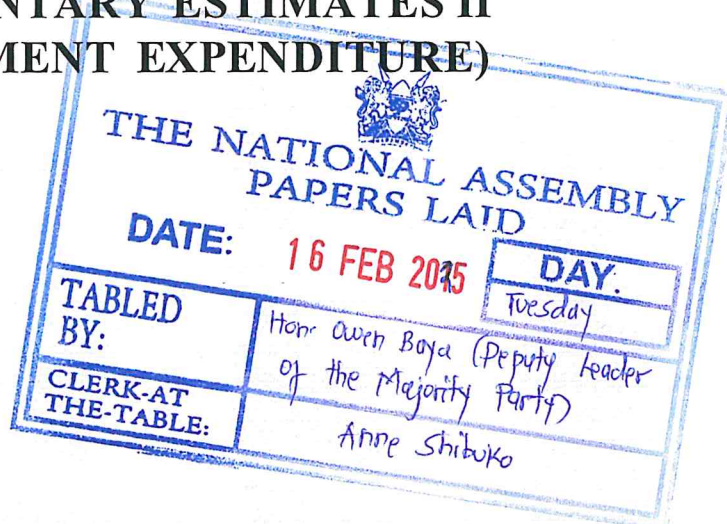 NTARY ESTIMATES II
MENT EXPENDITURE)
THE NATIONAL ASSEMBLY
PAPERS LAID
DATE: 16 FEB
DAY:
Tuesday
TABLED
BY:
Hon. Owen Baya (Deputy Leader
of the Majority Party)
CLERK-AT
THE-TABLE:
Anne Shibuko